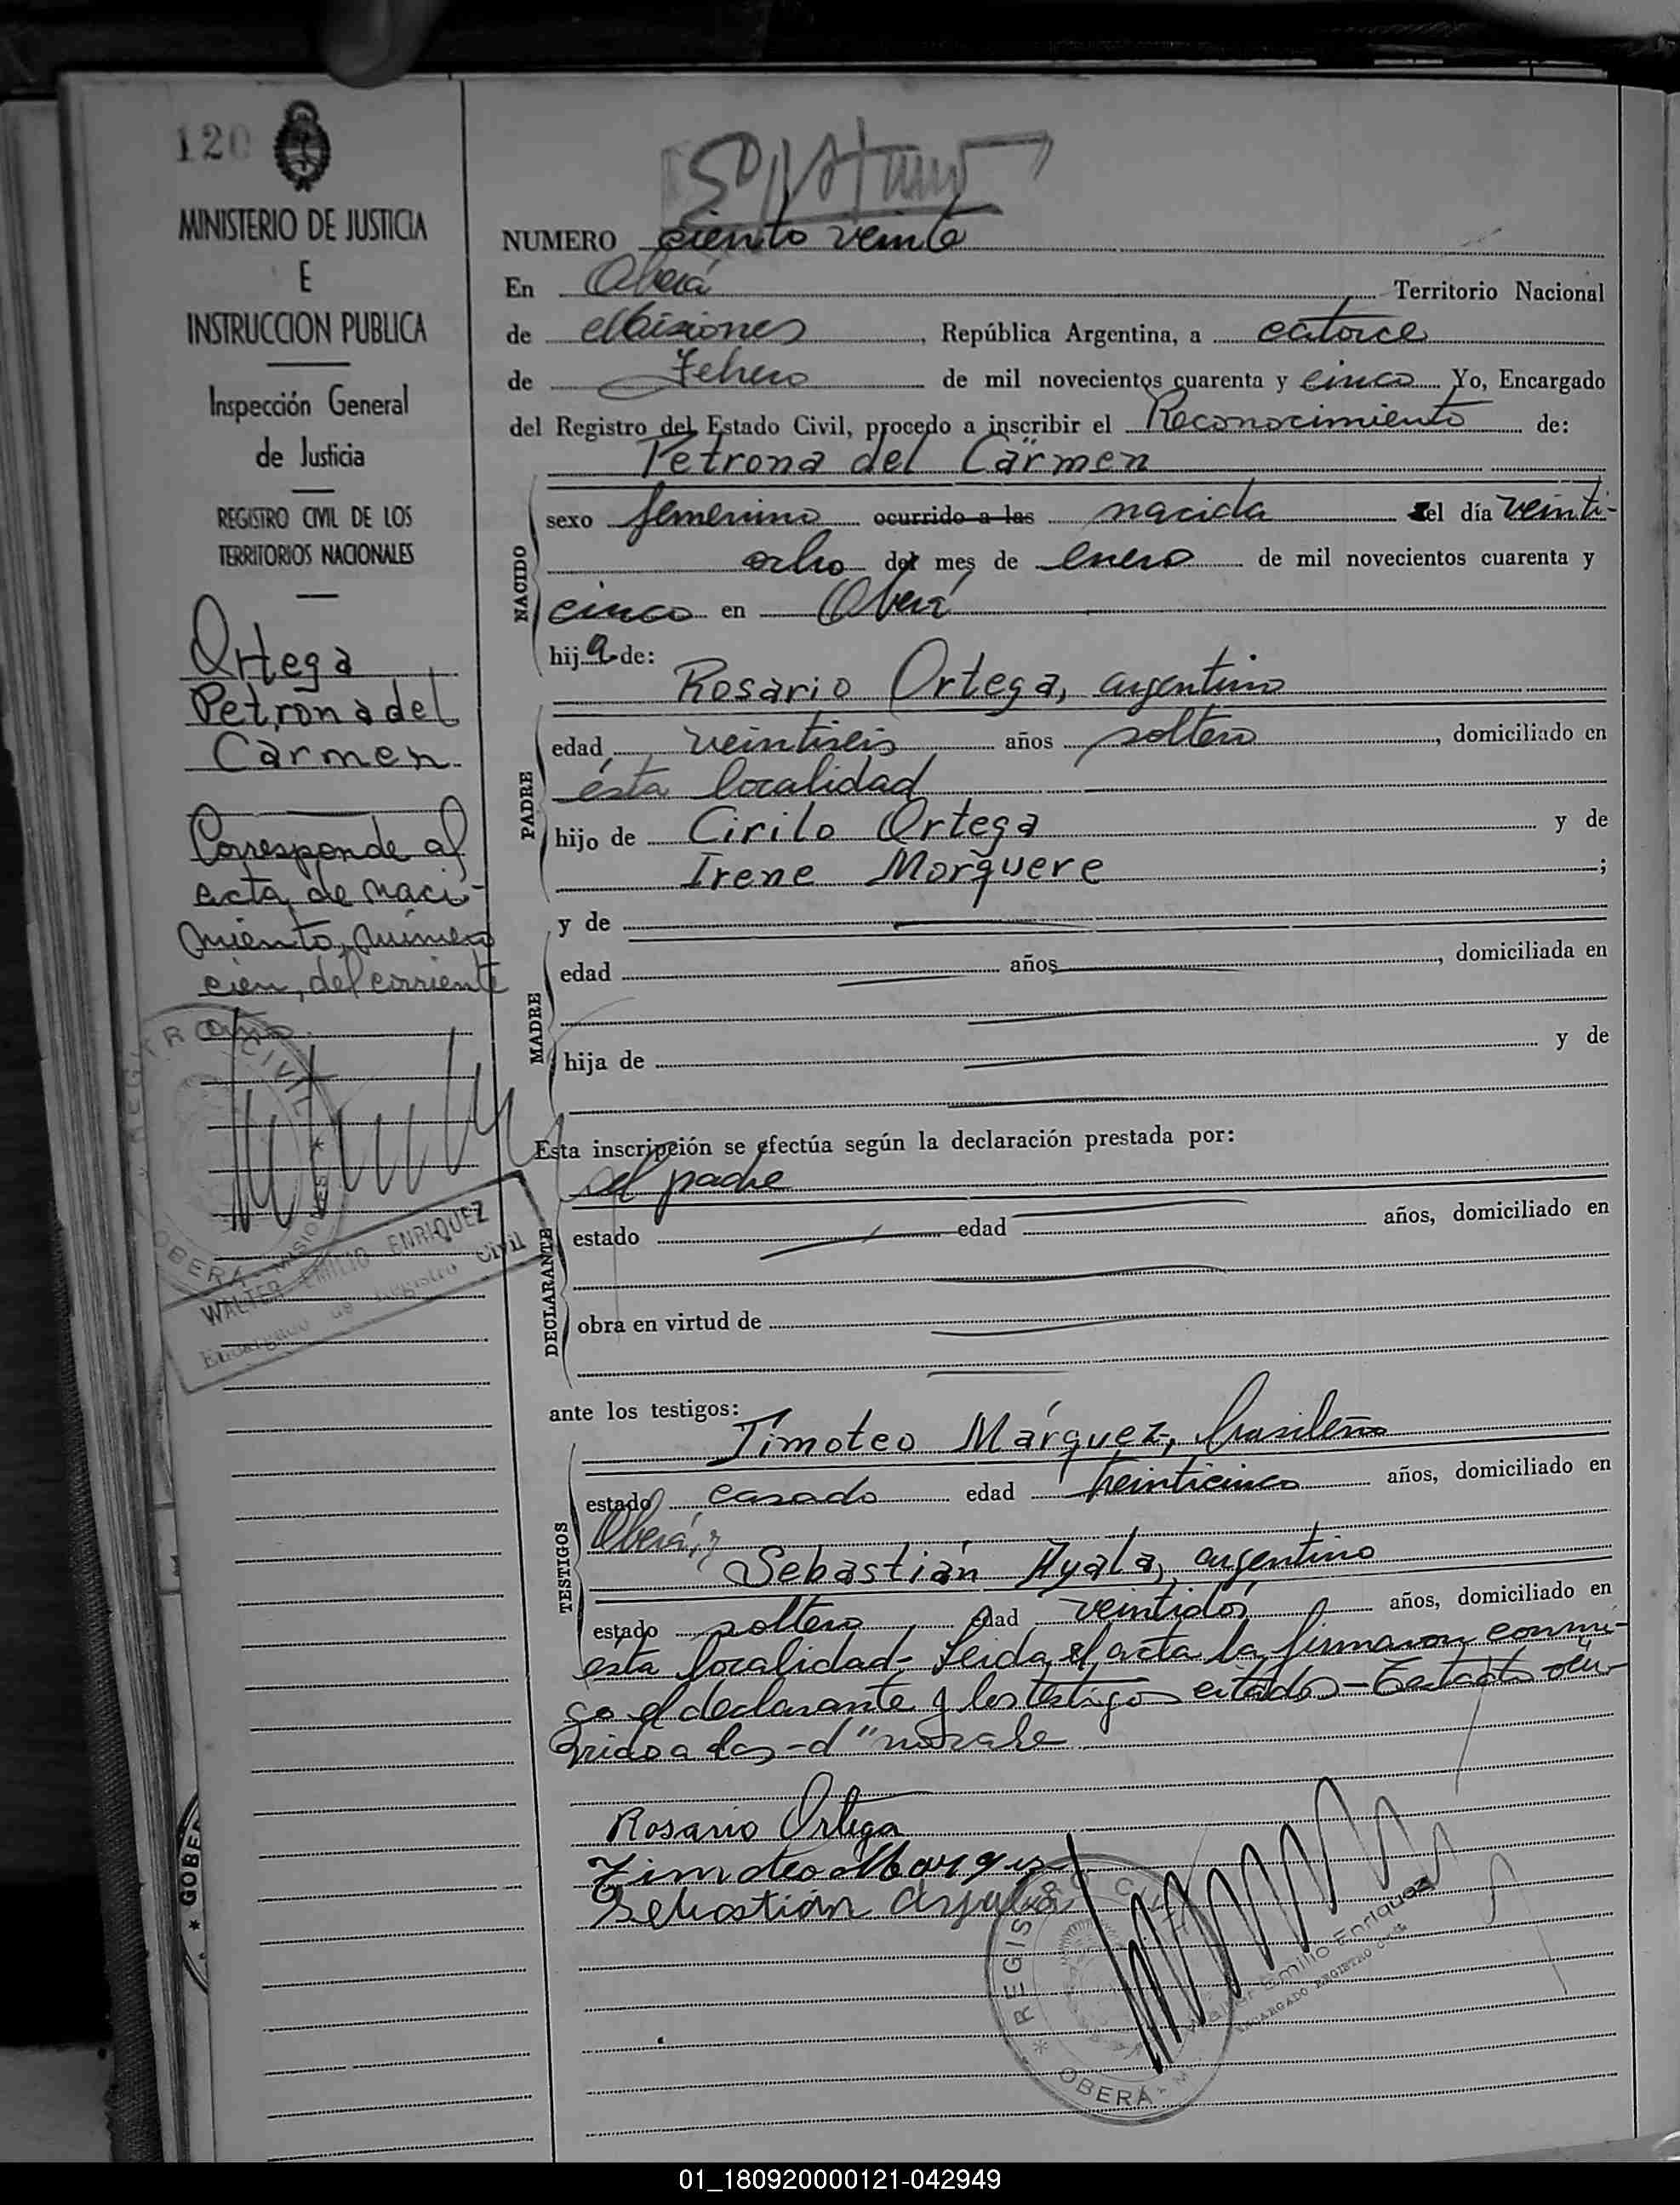 120
MINISTERIO DE JUSTICIA
E
INSTRUCCION PUBLICA
Inspección General
de Justicia
REGISTRO CIVIL DE LOS
TERRITORIOS NACIONALES
Ortega
Petrona del
Carmen
Corresponde al
acta de naci-
miento, número
cien, del corriente
año.
REGISTRO CIVIL
OBERÁ - MISIONES
WALTER EMILIO ENRIQUEZ
Encargado de Registro Civil
NUMERO ciento veinte
En Oberá Territorio Nacional
de Misiones, República Argentina, a catorce
de Febrero de mil novecientos cuarenta y cinco Yo, Encargado
del Registro del Estado Civil, procedo a inscribir el Reconocimiento de:
Petrona del Carmen
NACIDO
sexo femenino ocurrido a las nacida el día veinti-
ocho del mes de enero de mil novecientos cuarenta y
cinco en Oberá
hija de:
PADRE
Rosario Ortega, argentino
edad veintiseis años soltero, domiciliado en
ésta localidad
hijo de Cirilo Ortega y de
Irene Morquere;
MADRE
y de
edad años, domiciliada en
hija de y de
Esta inscripción se efectúa según la declaración prestada por:
DECLARANTE
el padre
estado edad años, domiciliado en
obra en virtud de
ante los testigos:
TESTIGOS
Timoteo Márquez, brasileño
estado casado edad años, domiciliado en
Oberá, y
Sebastián Ayala, argentino
estado soltero edad veintidos años, domiciliado en
esta localidad- Leida el acta la firmaron conmi-
go el declarante y los testigos citados - Testado ocu-
rrido a las - d" no vale
Rosario Ortega
Timoteo Marquez
Sebastián Ayala
REGISTRO CIVIL
OBERÁ - M
Walter Emilio Enriquez
ENCARGADO REGISTRO CIVIL
* GOBER
01_180920000121-042949